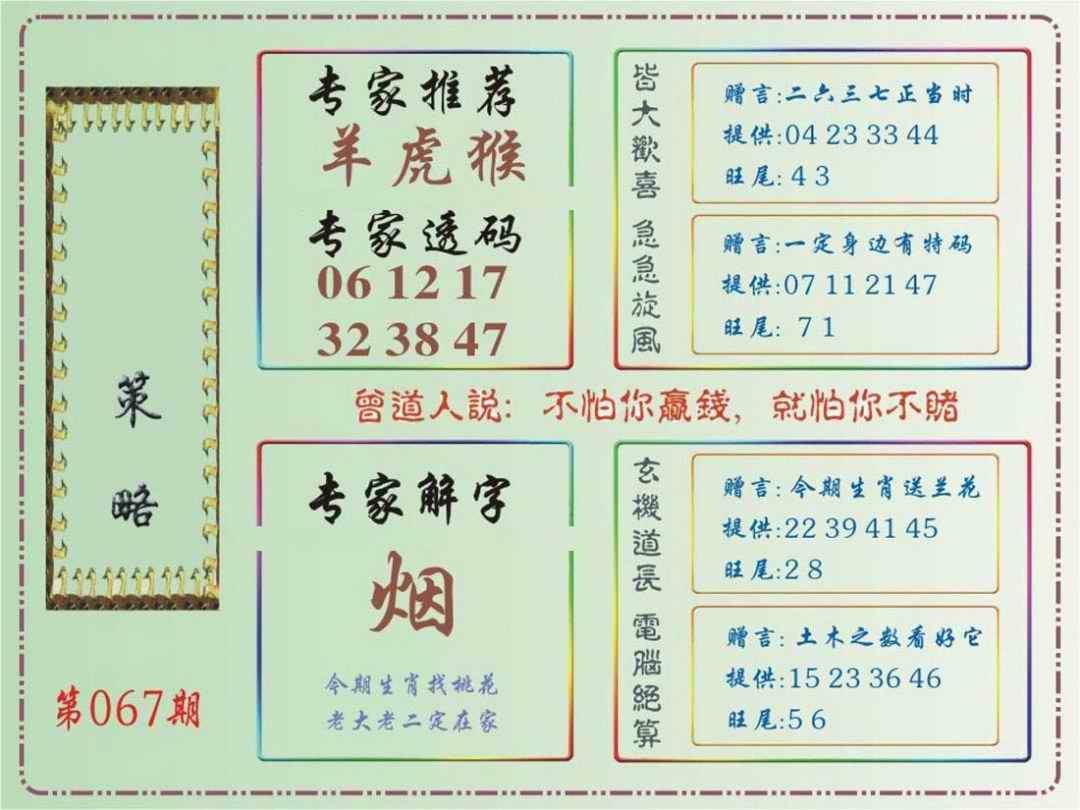 策略
第067期
专家推荐
羊虎猴
专家透码
06 12 17
32 38 47
皆大歡喜
赠言:二六三七正当时
提供:04 23 33 44
旺尾: 4 3
急急旋風
赠言:一定身边有特码
提供:07 11 21 47
旺尾: 7 1
曾道人説: 不怕你贏錢, 就怕你不賭
专家解字
烟
今期生肖找桃花
老大老二定在家
玄機道長
赠言: 今期生肖送兰花
提供:22 39 41 45
旺尾:2 8
電腦絕算
赠言: 土木之数看好它
提供:15 23 36 46
旺尾:5 6